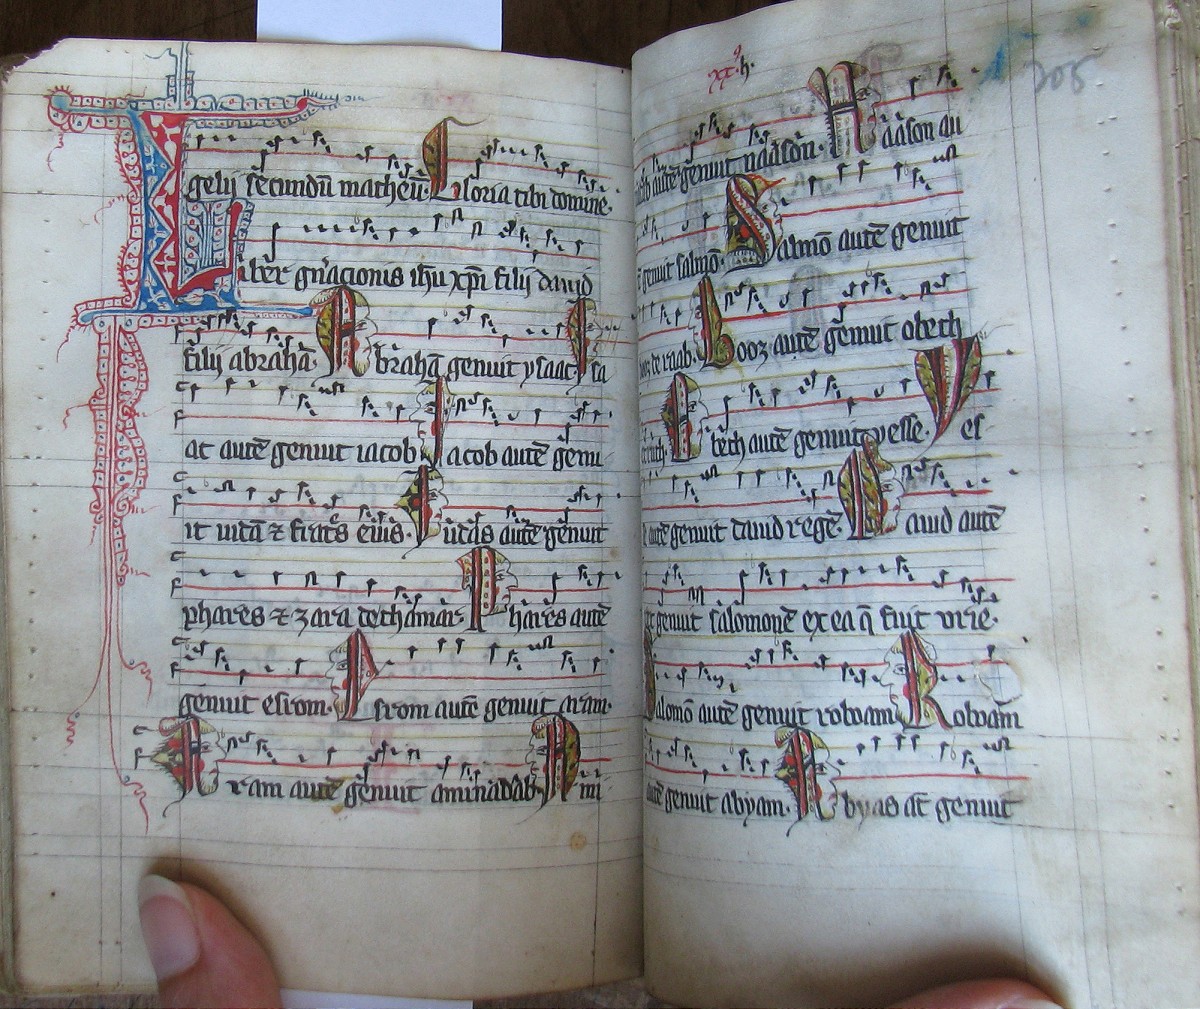 gelii secundū matheū. Gloria tibi domine.
Liber gn̄acionis ihu xp̄i filii dauid
filii abrahā. Abrahā genuit ysaac. ysa
ac autē genuit iacob. Iacob autē genu
it iudā ⁊ fratēs eius. Iudas autē genuit
phares ⁊ zara de thamar. Phares autē
genuit esrom. Esrom autē genuit aram.
Aram autē genuit aminadab. Ami
xx°.h.
205
nadab autē genuit naason. Naason au
tē genuit salmō. Salmō autē genuit
booz de raab. Booz autē genuit obeth
ex ruth. Obeth autē genuit yesse. Yes
se autē genuit dauid regē. Dauid autē
rex genuit salomonē ex ea q̄ fuit vrie.
Salomō autē genuit roboam. Roboam
autē genuit abyam. Abyas aū genuit